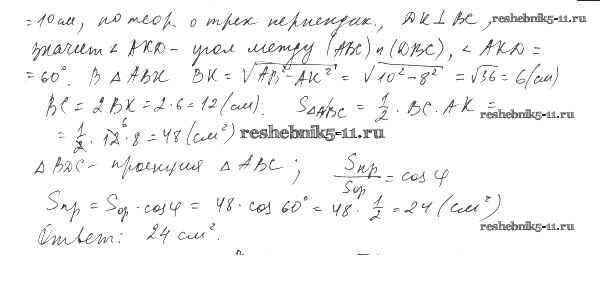 = 10 см, по теор о трех перпендик., DK ⊥ BC,
reshebnik5-11.ru
значит ∠ AKD - угол между (ABC) и (DBC), ∠ AKD =
= 60°. В △ ABK BK = √AB² - AK² = √10² - 8² = √36 = 6 (см)
BC = 2BK = 2·6 = 12 (см). S△ABC = 1/2 · BC · AK =
reshebnik5-11.ru
= 1/2 · 12 · 8 = 48 (см²) reshebnik5-11.ru
△ BDC - проекция △ ABC; Sпр/Sор = cos φ
Sпр = Sор · cos φ = 48 · cos 60° = 48 · 1/2 = 24 (см²)
reshebnik5-11.ru
Ответ: 24 см².